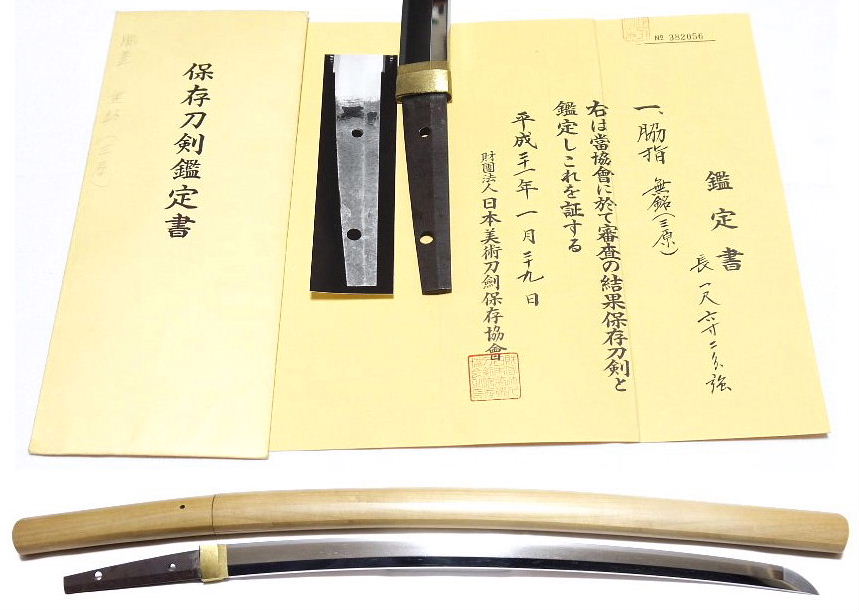 保存刀剣鑑定書
№ 382056
鑑定書
長一尺六寸二分強
一、脇指 無銘(三原)
右は當協會に於て審査の結果保存刀剣と
鑑定しこれを証する
平成二十一年一月二十九日
財團法人日本美術刀劍保存協會